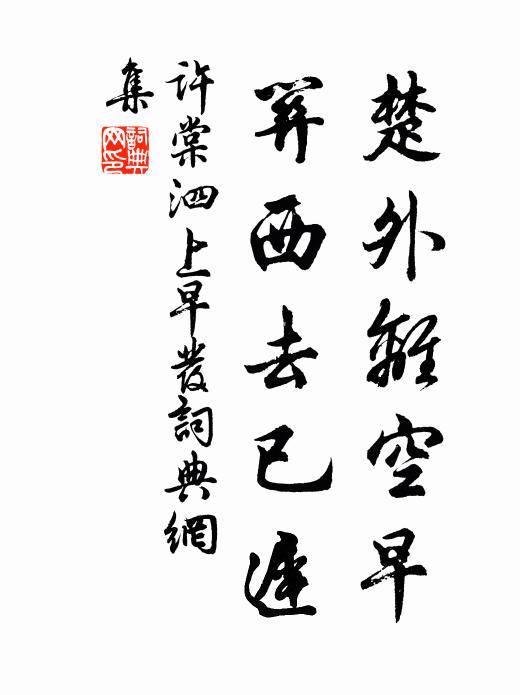 楚外離空早
關西去已遲
許棠泗上早發詞典網
集
詞典網印